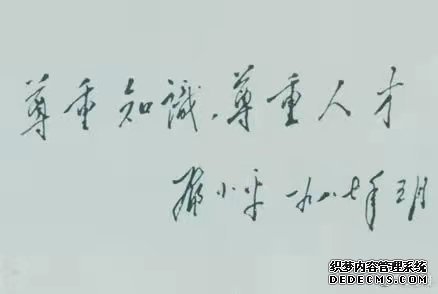 尊重知識,尊重人才
邓小平 一九八七年三月
织梦内容管理系统
DEDECMS.COM